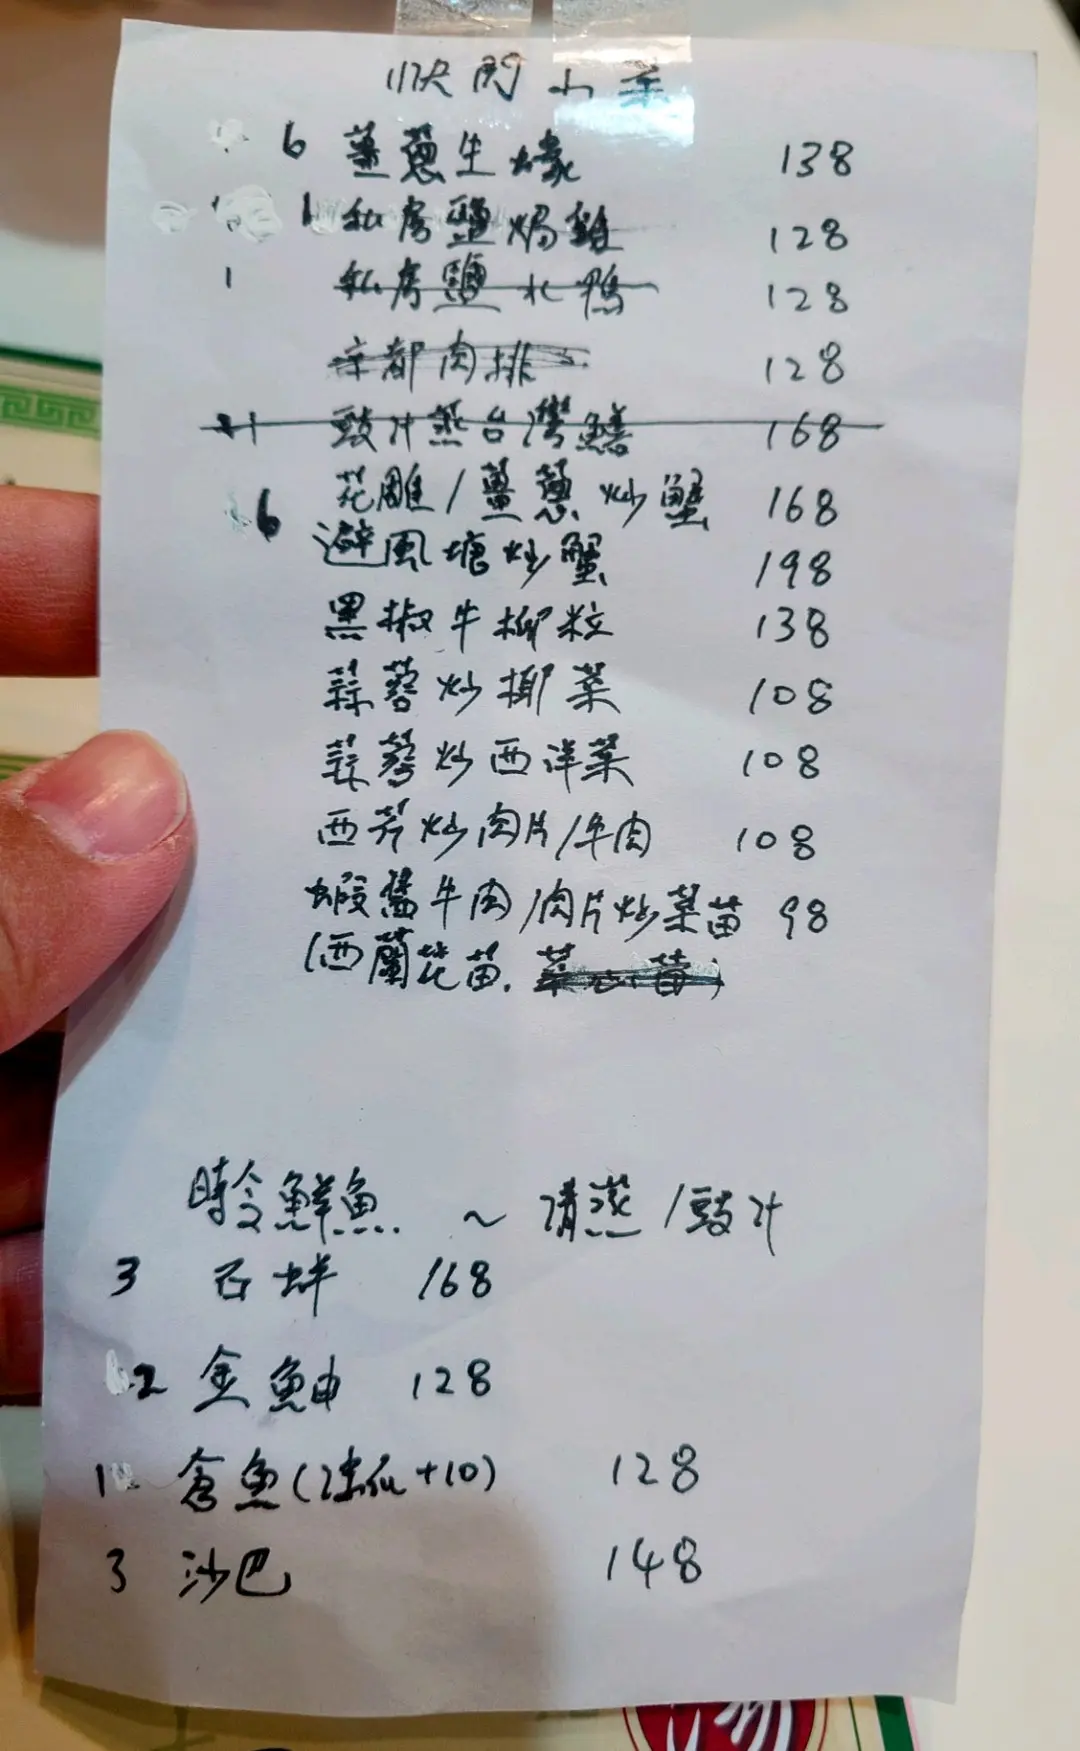 快閃小菜
6 薑蔥生蠔 138
1 私房鹽焗雞 128
1 私房鹽水鴨 128
京都肉排 128
1 豉汁蒸台灣鱔 168
花雕/薑蔥炒蟹 168
6 避風塘炒蟹 198
黑椒牛柳粒 138
蒜蓉炒椰菜 108
蒜蓉炒西洋菜 108
西芹炒肉片/牛肉 108
蝦醬牛肉/肉片炒菜苗 98
(西蘭花苗. 菜心苗)
時令鮮魚. ~ 清蒸/豉汁
3 石蚌 168
2 金鮋 128
1 倉魚(凍瓜+10) 128
3 沙巴 148